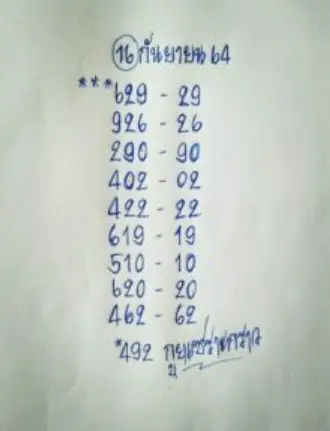 16 กันยายน 64
***629 - 29
926 - 26
290 - 90
402 - 02
422 - 22
619 - 19
510 - 10
620 - 20
462 - 62
*492